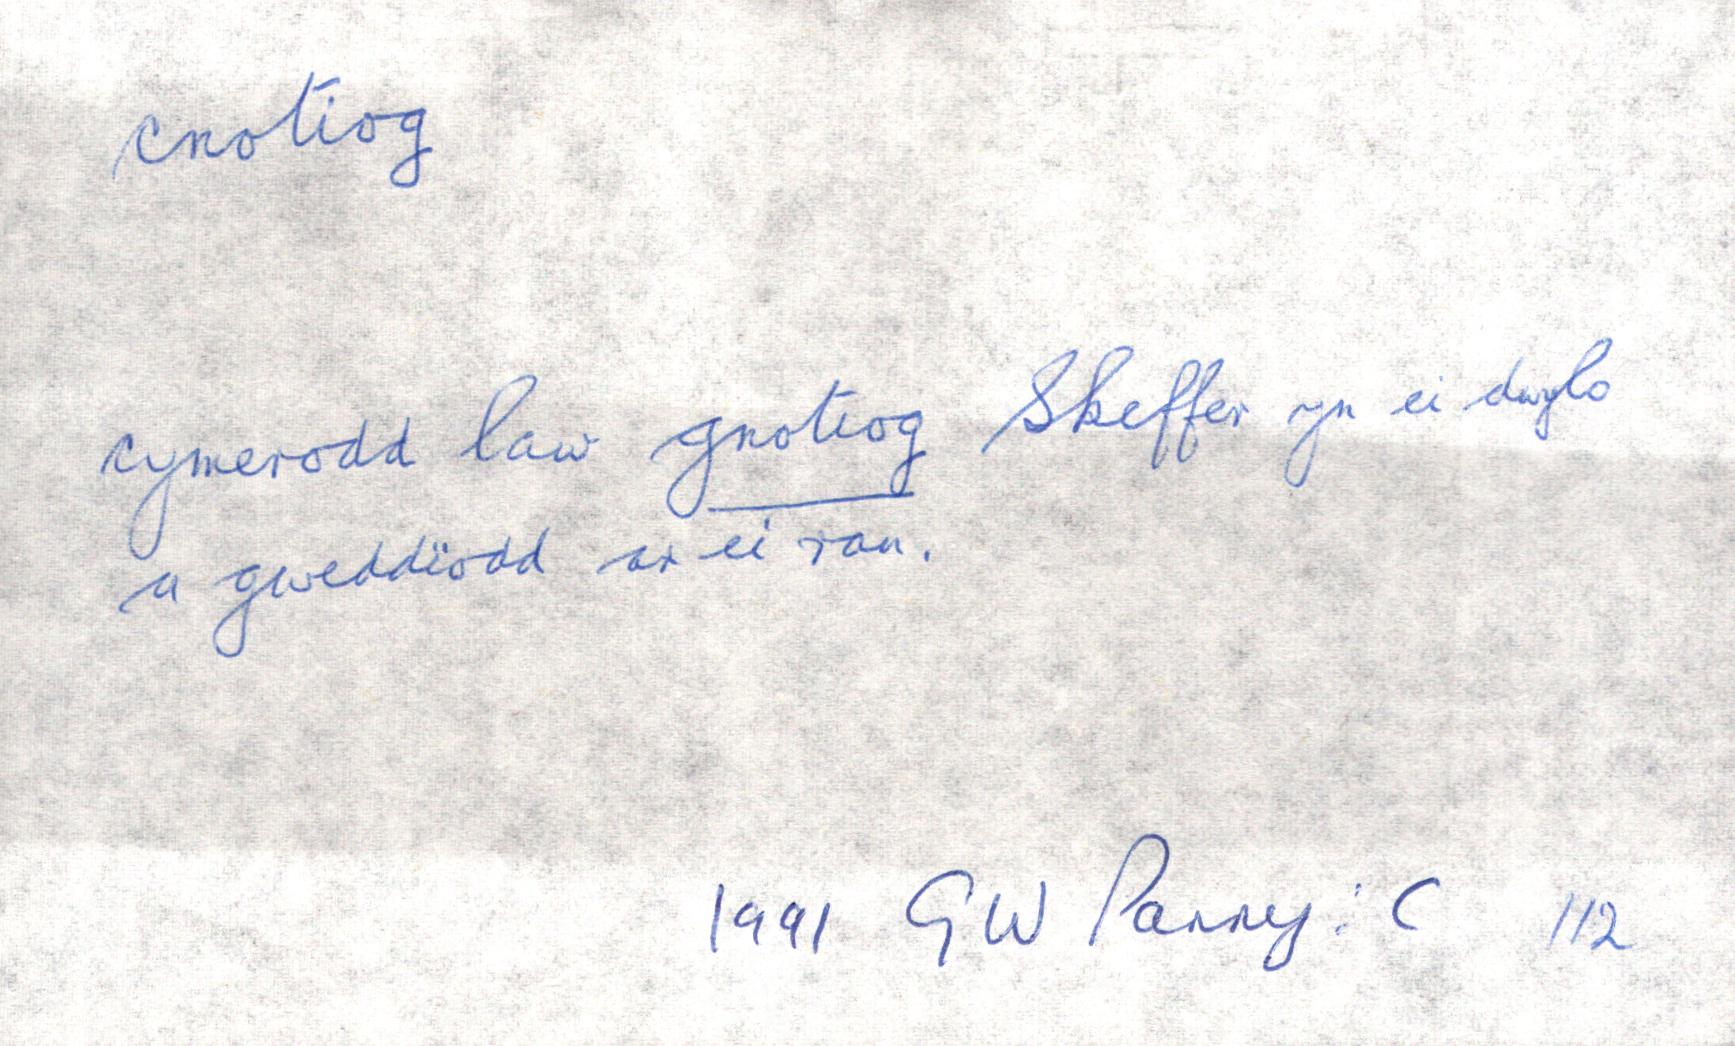 cnotiog
cymerodd law gnotiog Skeffer yn ei dwylo
a gweddïodd ar ei ran.
1991 GW Parry : C 112